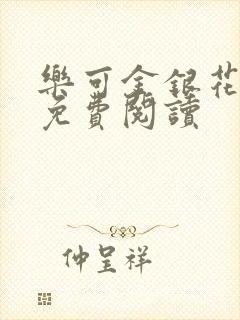 樂可金銀花
免費閱讀
仲呈祥